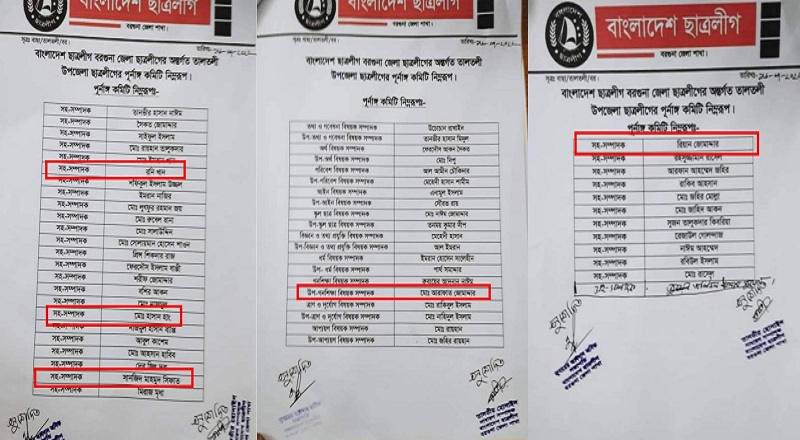 বাংলাদেশ ছাত্রলীগ
বরগুনা জেলা শাখা।
ছাত্রলীগ
সূত্রঃ বাছা/তালতলী/বর।
তারিখঃ-
বাংলাদেশ ছাত্রলীগ বরগুনা জেলা ছাত্রলীগের অন্তর্গত তালতলী
উপজেলা ছাত্রলীগের পূর্নাঙ্গ কমিটি নিম্নরূপ।
পূর্নাঙ্গ কমিটি নিম্নরূপঃ-
সহ-সম্পাদক তানভীর হাসান নাঈম
সহ-সম্পাদক সৈকত জোমাদ্দার
সহ-সম্পাদক সাইফুল ইসলাম
সহ-সম্পাদক মোঃ রায়হান তালুকদার
সহ-সম্পাদক
সহ-সম্পাদক রনি খান
সহ-সম্পাদক শফিকুল ইসলাম উজ্জল
সহ-সম্পাদক ইমরান নাজির
সহ-সম্পাদক মোঃ লুৎফুর রহমান জয়
সহ-সম্পাদক মোঃ রুবেল রানা
সহ-সম্পাদক মোঃ সালাউদ্দিন
সহ-সম্পাদক মোঃ সোলায়মান হোসেন শাওন
সহ-সম্পাদক প্রিন্স শিকদার রাজ
সহ-সম্পাদক ফেরদৌস ইসলাম বাপ্পী
সহ-সম্পাদক শরীফ জোমাদ্দার
সহ-সম্পাদক রশিদ আকন
সহ-সম্পাদক
সহ-সম্পাদক মোঃ হাসান হাং
সহ-সম্পাদক
সহ-সম্পাদক আবুল কাশেম
সহ-সম্পাদক মোঃ আহসান হাবিব
সহ-সম্পাদক
সহ-সম্পাদক সানজিদ মাহমুদ সিফাত
সহ-সম্পাদক মিরাজ মৃধা
বাংলাদেশ ছাত্রলীগ
বরগুনা জেলা শাখা।
ছাত্রলীগ
সূত্রঃ বাছা/তালতলী/বর।
তারিখঃ-
বাংলাদেশ ছাত্রলীগ বরগুনা জেলা ছাত্রলীগের অন্তর্গত তালতলী
উপজেলা ছাত্রলীগের পূর্নাঙ্গ কমিটি নিম্নরূপ।
পূর্নাঙ্গ কমিটি নিম্নরূপঃ-
তথ্য ও গবেষনা বিষয়ক সম্পাদক
উপ-তথ্য ও গবেষনা বিষয়ক সম্পাদক তানভীর হাসান মিদুল
অর্থ বিষয়ক সম্পাদক ফেরদৌস আকন সৈকত
উপ-অর্থ বিষয়ক সম্পাদক মোঃ দিপু
পরিবেশ বিষয়ক সম্পাদক আল আমীন চৌকিদার
উপ-পরিবেশ বিষয়ক সম্পাদক মেহেদী হাসান শামীম
আইন বিষয়ক সম্পাদক এনামুল ইসলাম
উপ-আইন বিষয়ক সম্পাদক সৌরভ রায়
স্কুল ছাত্র বিষয়ক সম্পাদক মোঃ নাঈম জোমাদ্দার
উপ-স্কুল ছাত্র বিষয়ক সম্পাদক তনময় কুমার দীপ
বিজ্ঞান ও তথ্য প্রযুক্তি বিষয়ক সম্পাদক মেহেদী হাসান
উপ-বিজ্ঞান ও তথ্য প্রযুক্তি বিষয়ক সম্পাদক আল ইমরান
ধর্ম বিষয়ক সম্পাদক ইমরান হোসেন সালেহীন
উপ-ধর্ম বিষয়ক সম্পাদক পার্থ সমাদ্দার
গনশিক্ষা বিষয়ক সম্পাদক
উপ-গনশিক্ষা বিষয়ক সম্পাদক মোঃ আরাফাত জোমাদ্দার
ত্রান ও দূর্যোগ বিষয়ক সম্পাদক মোঃ রাকিবুল ইসলাম
উপ-ত্রান ও দূর্যোগ বিষয়ক সম্পাদক মোঃ নাহিদুল ইসলাম
আপ্যায়ণ বিষয়ক সম্পাদক মোঃ রায়হান
উপ-আপ্যায়ণ বিষয়ক সম্পাদক মোঃ জহির রায়হান
বাংলাদেশ ছাত্রলীগ
বরগুনা জেলা শাখা।
ছাত্রলীগ
সূত্রঃ বাছা/তালতলী/বর।
তারিখঃ-
বাংলাদেশ ছাত্রলীগ বরগুনা জেলা ছাত্রলীগের অন্তর্গত তালতলী
উপজেলা ছাত্রলীগের পূর্নাঙ্গ কমিটি নিম্নরূপ।
পূর্নাঙ্গ কমিটি নিম্নরূপঃ-
সহ-সম্পাদক রিয়ান জোমাদ্দার
সহ-সম্পাদক রহসুজ্জামান রাসেল
সহ-সম্পাদক আরফান আহম্মেদ জহির
সহ-সম্পাদক রাকিব আহসান
সহ-সম্পাদক মোঃ জহির মোল্লা
সহ-সম্পাদক মোঃ জাহিদ আকন
সহ-সম্পাদক সুজন তালুকদার কিবরিয়া
সহ-সম্পাদক রেজাউল গোলন্দাজ
সহ-সম্পাদক নাঈম আহমেদ
সহ-সম্পাদক রবিউল ইসলাম
সহ-সম্পাদক মোঃ রাসেল